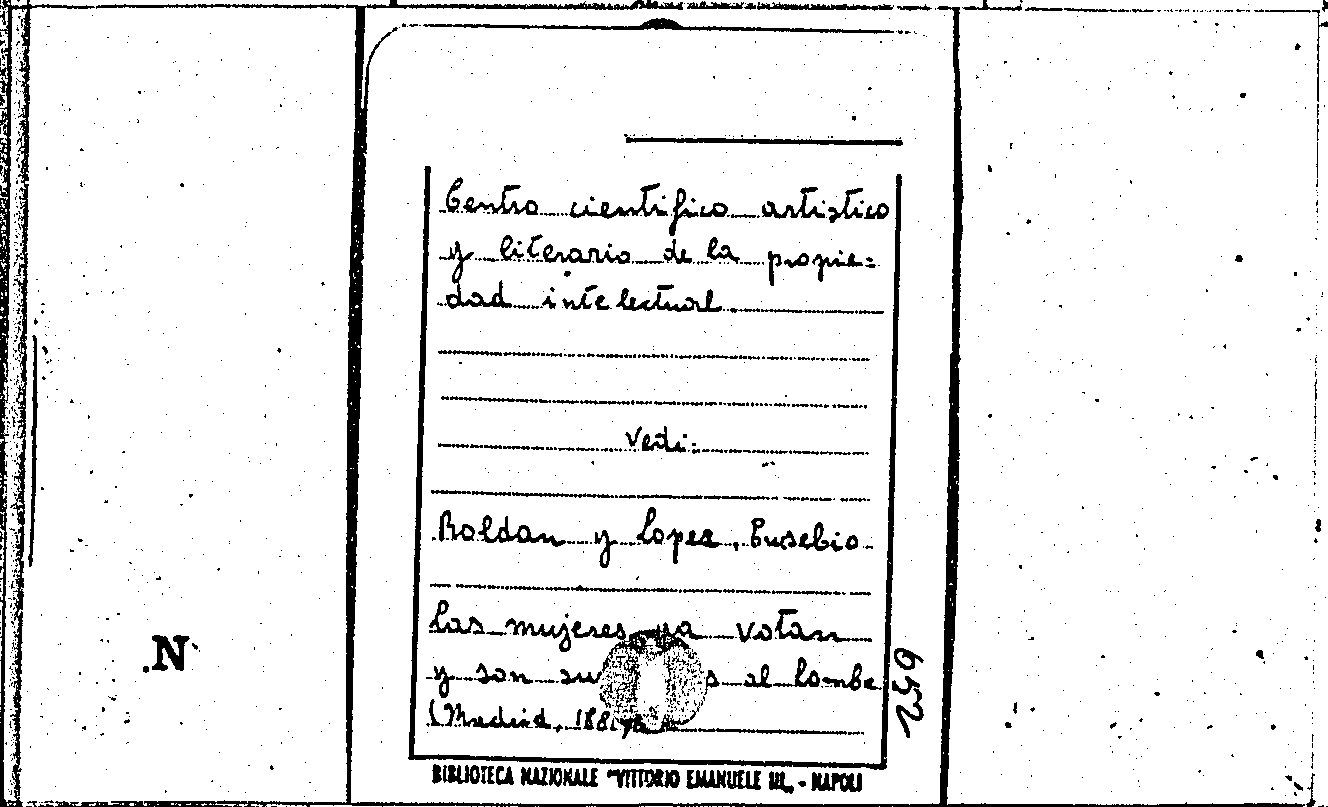 Centro cientifico artistico
y literario de la propie=
dad intelectual.
Vedi:
Roldan y Lopez, Eusebio
Las mujeres ya votan
y son al hombre
(Madrid,
N
BIBLIOTECA NAZIONALE "VITTORIO EMANUELE III„ - NAPOLI